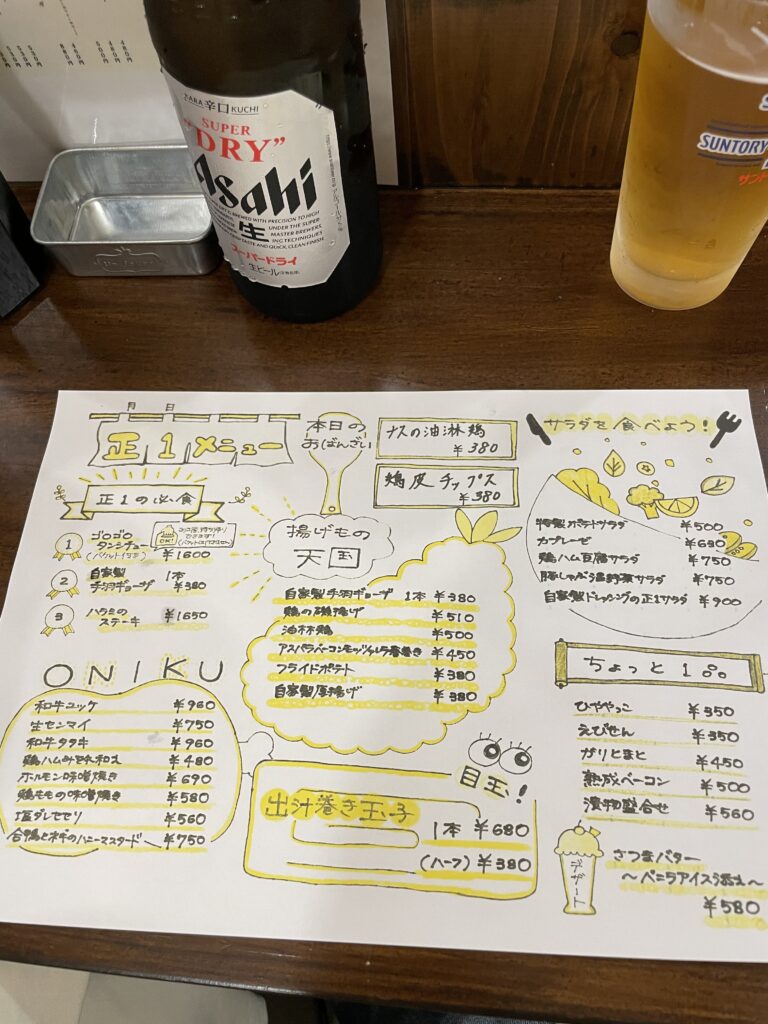 KARA 辛口 KUCHI
SUPER
"DRY"
Asahi
生
UNDER THE SUPER-
MASTER BREWERS,
ING TECHNIQUES
TASTE AND QUICK, CLEAN FINISH
スーパードライ
生ビール
SUNTORY
月 日
正1メニュー
正1の必食
1 ゴロゴロ
タンシチュー
(バケット付き) ¥1600
2 自家製 1本
手羽ギョーザ ¥380
3 ハラミの
ステーキ ¥1650
本日の
おばんざい
ナスの油淋鶏
¥380
鶏皮チップス
¥380
揚げもの
天国
自家製手羽ギョーザ 1本 ¥380
鶏の磯揚げ ¥510
油林鶏 ¥500
アスパラベーコンモッツァレラ春巻き ¥450
フライドポテト ¥380
自家製厚揚げ ¥380
サラダを食べよう!
特製ポテトサラダ ¥500
カプレーゼ ¥630
鶏ハム豆腐サラダ ¥750
豚しゃぶ温野菜サラダ ¥750
自家製ドレッシングの正1サラダ ¥900
ONIKU
和牛ユッケ ¥960
生センマイ ¥750
和牛タタキ ¥960
鶏ハムみぞれ和え ¥480
ホルモン味噌焼き ¥690
鶏もも味噌焼き ¥580
塩ダレせせり ¥560
合鴨とネギのハニーマスタード ¥750
目玉!
出汁巻き玉子
1本 ¥680
(ハーフ) ¥380
ちょっと1品
ひややっこ ¥350
えびせん ¥350
ガリとまと ¥450
熟成ベーコン ¥500
漬物盛合せ ¥560
デザート
さつまバター
～バニラアイス添え～
¥580